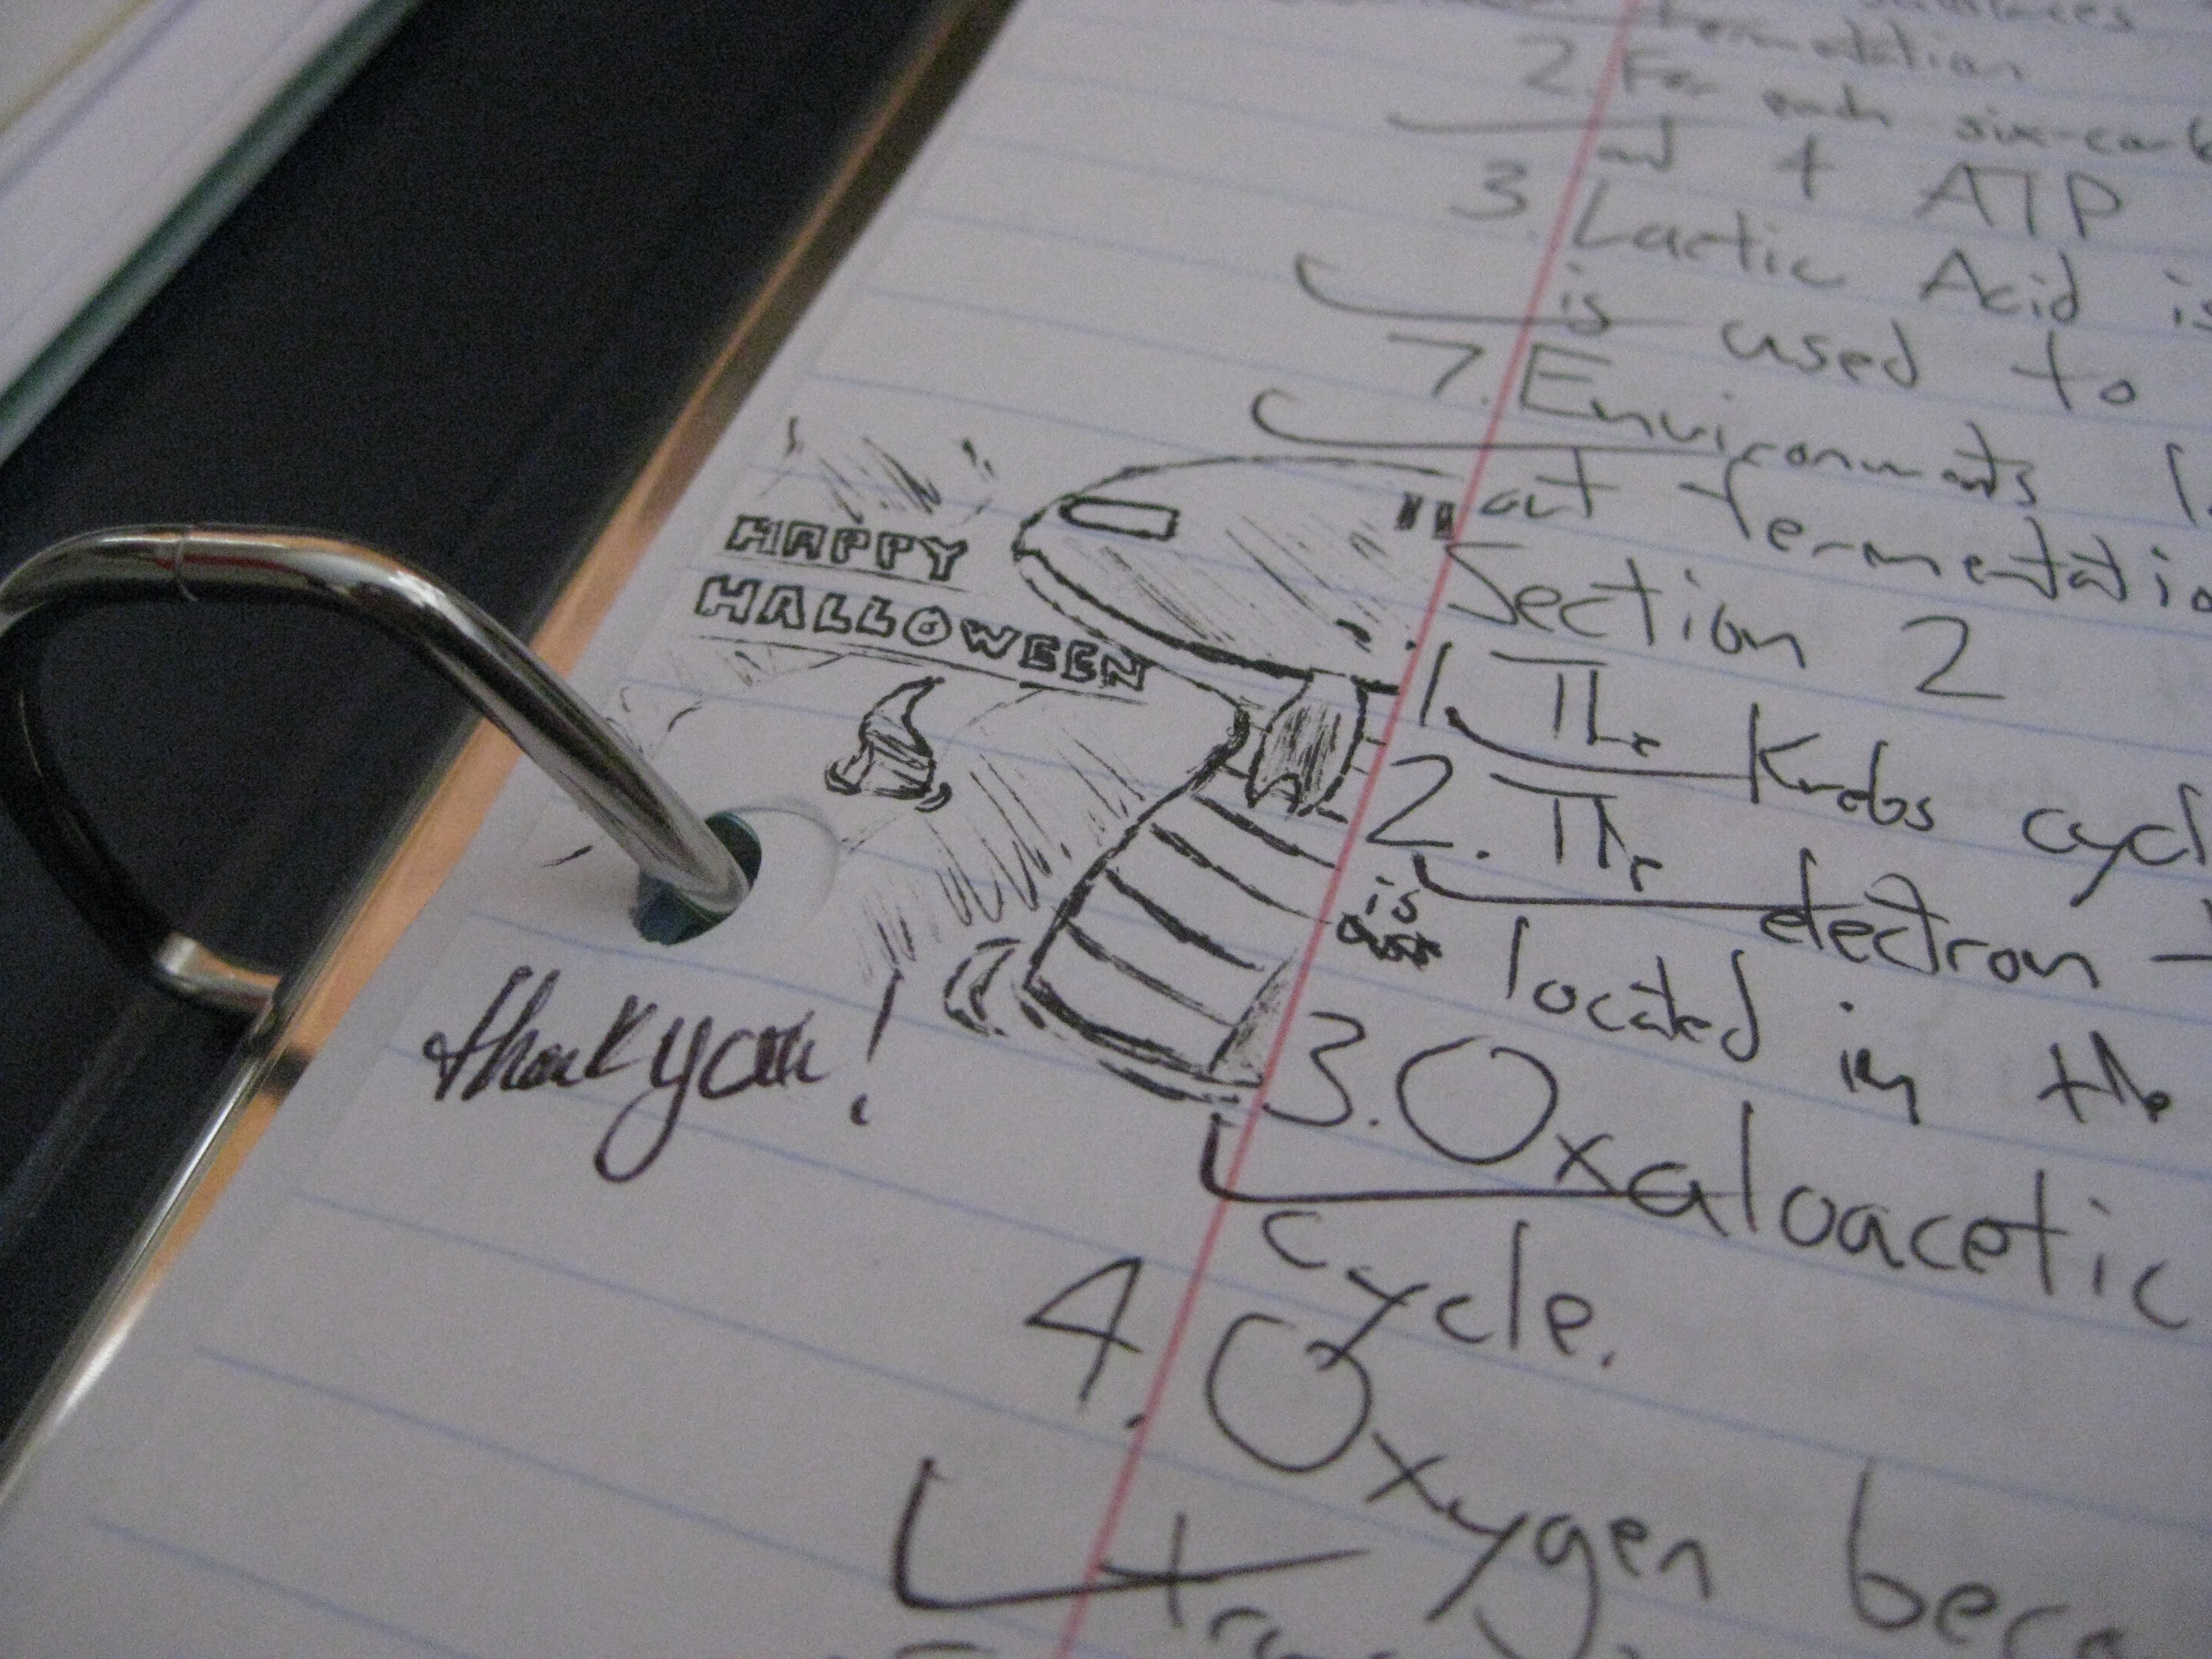 fermentation
2. For each six-carb
and 4 ATP
3. Lactic Acid is
is used to
7. Environments
out fermentatio
Section 2
1. The Krebs cycl
2. The electron
is located in the
3. Oxaloacetic
cycle.
4. Oxygen beca
HAPPY
HALLOWEEN
thank you!